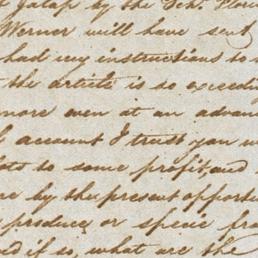 Jalap by the Schr. Flori
Werner will have sent
had my instructions to
the article is so exceedin
more even at an advan
account I trust you w
lots to some profit, and
by the present opportu
produce or specie fra
if so, what are the